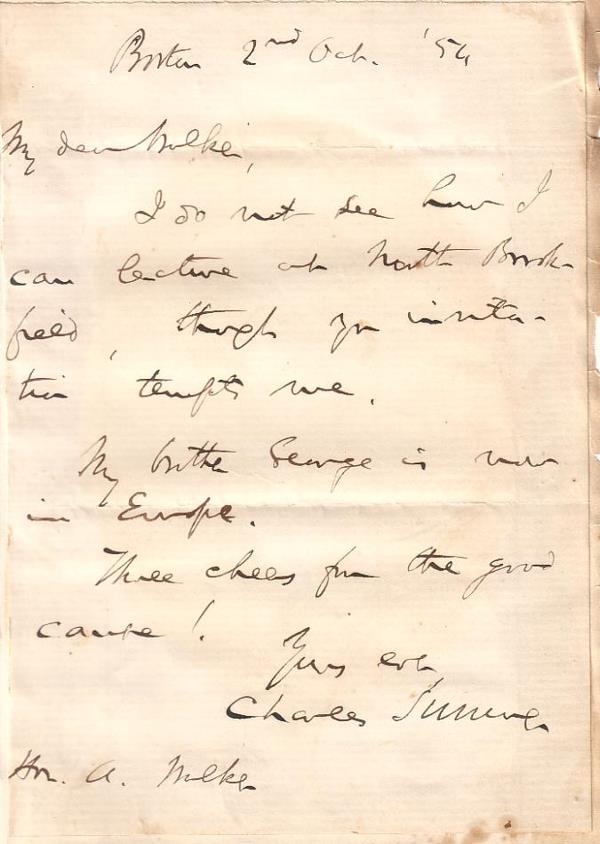 Boston 2nd Oct. '54
My dear Walker,
I do not see how I
can lecture at North Brook-
field, though yr invita-
tion tempts me.
My brother George is now
in Europe.
Three cheers for the good
cause!
Yours ever,
Charles Sumner
Hon. A. Walker